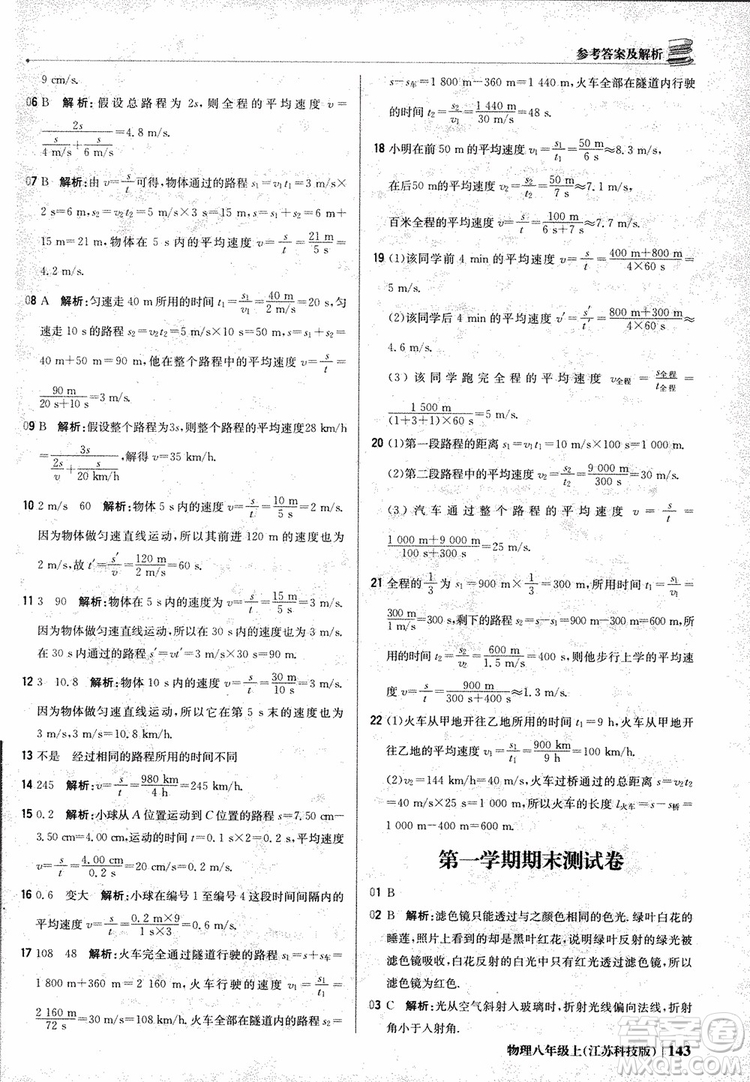 参考答案及解析
9 cm/s.
06 B 解析:假设总路程为 2s,则全程的平均速度 v=
2s/(s/(4 m/s)+s/(6 m/s))=4.8 m/s.
07 B 解析:由 v=s/t可得,物体通过的路程 s₁=v₁t₁=3 m/s×
2 s=6 m,s₂=v₂t₂=5 m/s×3 s=15 m,s=s₁+s₂=6 m+
15 m=21 m,物体在 5 s 内的平均速度 v=s/t=21 m/5 s=
4.2 m/s.
08 A 解析:匀速走 40 m 所用的时间 t₁=s₁/v₁=40 m/(2 m/s)=20 s,匀
速走 10 s 的路程 s₂=v₂t₂=5 m/s×10 s=50 m,s=s₁+s₂=
40 m+50 m=90 m,他在整个路程中的平均速度 v=s/t=
90 m/(20 s+10 s)=3 m/s.
09 B 解析:假设整个路程为3s,则整个路程的平均速度28 km/h
=3s/(2s/v+s/(20 km/h)),解得 v=35 km/h.
10 2 m/s 60 解析:物体 5 s 内的速度 v=s/t=10 m/5 s=2 m/s.
因为物体做匀速直线运动,所以其前进 120 m 的速度也为
2 m/s,故 t′=s′/v=120 m/(2 m/s)=60 s.
11 3 90 解析:物体在 5 s 内的速度 v=s/t=15 m/5 s=3 m/s.
因为物体做匀速直线运动,所以物体的速度不变,故物体
在 30 s 内通过的路程 s′=vt′=3 m/s×30 s=90 m.
12 3 10.8 解析:物体在 10 s 内的速度 v=s/t=30 m/10 s=3 m/s.
因为物体做匀速直线运动,所以在前 5 s 内的速度也为
3 m/s=10.8 km/h.
13 不是 经过相同的路程所用的时间不同
14 245 解析:v=s/t=980 km/4 h=245 km/h.
15 0.2 解析:小球从 A 位置运动到 C 位置的路程 s=7.50 cm
-3.50 cm=4.00 cm,运动的时间 t=10 s×2=20 s,平均速度
v=s/t=4.00 cm/20 s=0.2 cm/s.
16 0.6 变大 解析:小球在编号 1 至编号 4 时间间隔内的
平均速度 v=s/t=0.2 m×9/(1 s×3)=0.6 m/s.
17 108 48 解析:火车完全通过隧道行驶的路程 s₁=s+s车=
1 800 m+360 m=2 160 m,火车行驶的速度 v₁=s₁/t₁=
2 160 m/72 s=30 m/s=108 km/h.火车全部在隧道内的路程 s₂=
s-s车=1 800 m-360 m=1 440 m,火车全部在隧道内行驶
的时间 t₂=s₂/v₁=1 440 m/(30 m/s)=48 s.
18 小明在前 50 m 的平均速度 v₁=s₁/t₁=50 m/6 s≈8.3 m/s,
在后50 m 的平均速度 v₂=s₂/t₂=50 m/7 s≈7.1 m/s,
百米全程的平均速度 v=s/t=100 m/(6 s+7 s)≈7.7 m/s.
19 (1)该同学前 4 min 的平均速度 v=s/t=(400 m+800 m)/((1+3)×60 s)=
5 m/s.
(2)该同学后 4 min 的平均速度 v′=s′/t′=(800 m+300 m)/((3+1)×60 s)≈
4.6 m/s.
(3)该同学跑完全程的平均速度 v全程=s全程/t全程=
1 500 m/((1+3+1)×60 s)=5 m/s.
20 (1)第一段路程的距离 s₁=v₁t₁=5 m/s×200 s=1 000 m.
(2)第二段路程中的平均速度 v₂=s₂/t₂=9 000 m/600 s=15 m/s.
(3)汽车通过整个路程的平均速度 v=s/t=
(1 000 m+9 000 m)/(200 s+600 s+200 s)=10 m/s.
21 全程的1/3为 s₁=900 m×1/3=300 m,所用的时间 t₁=s₁/v₁=
300 m/(1 m/s)=300 s,剩下的路程 s₂=s-s₁=900 m-300 m=600 m,所
用的时间 t₂=600 m/(1.5 m/s)=400 s,他步行上学的平均速度 v=s/t=
900 m/(300 s+400 s)≈1.29 m/s.
22 (1)火车从甲地开往乙地的时间 t₁=9 h,火车从甲地开
往乙地的速度 v₁=s₁/t₁=1 080 km/9 h=120 km/h.
(2)v=72 km/h=20 m/s,火车过桥通过的路程 s=vt=
20 m/s×100 s=2 000 m,所以火车的长度 l火车=s-s桥=
2 000 m-1 000 m=1 000 m.
第一学期期末测试卷
01 B
02 B 解析:滤色镜只能透过与之颜色相同的色光.绿叶白花的
睡莲,照片上白花变成了黑叶红花,说明绿叶反射的绿光被
滤色镜吸收,白花反射的各种色光,只有红光透过滤色镜,故
滤色镜为红色.
03 C 解析:光从空气斜射入玻璃时,折射光线偏向法线,折射
角小于入射角.
物理八年级上(江苏科技版) 143